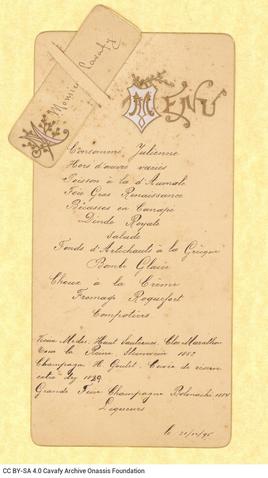 Monsieur
Cavafy
MENU
Consommé Julienne
Hors d'œuvre variés
Poisson à la d'Aumale
Foie Gras Renaissance
Bécasses en Canapé
Dinde Royale
Salade
Fonds d'Artichauts à la Grecque
Bombe Glacée
Choux à la Crême
Fromage Roquefort
Compotiers
Vieux Médoc. Haut Sauternes. Clos Marathon
la Reine Steinwein 1882
Champagne H. Goulet. Cuvée de réserve
extra dry 1889
Grande Fine Champagne 1884
Liqueurs
le
CC BY-SA 4.0 Cavafy Archive Onassis Foundation